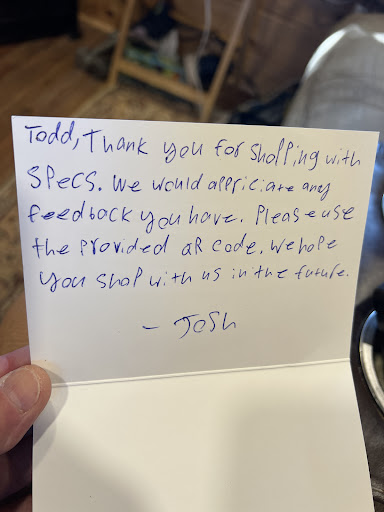 Todd, Thank you for Shopping with
SPecS. We would appriciate any
feedback you have. Please use
the provided QR code. We hope
you shop with us in the future.
- Josh